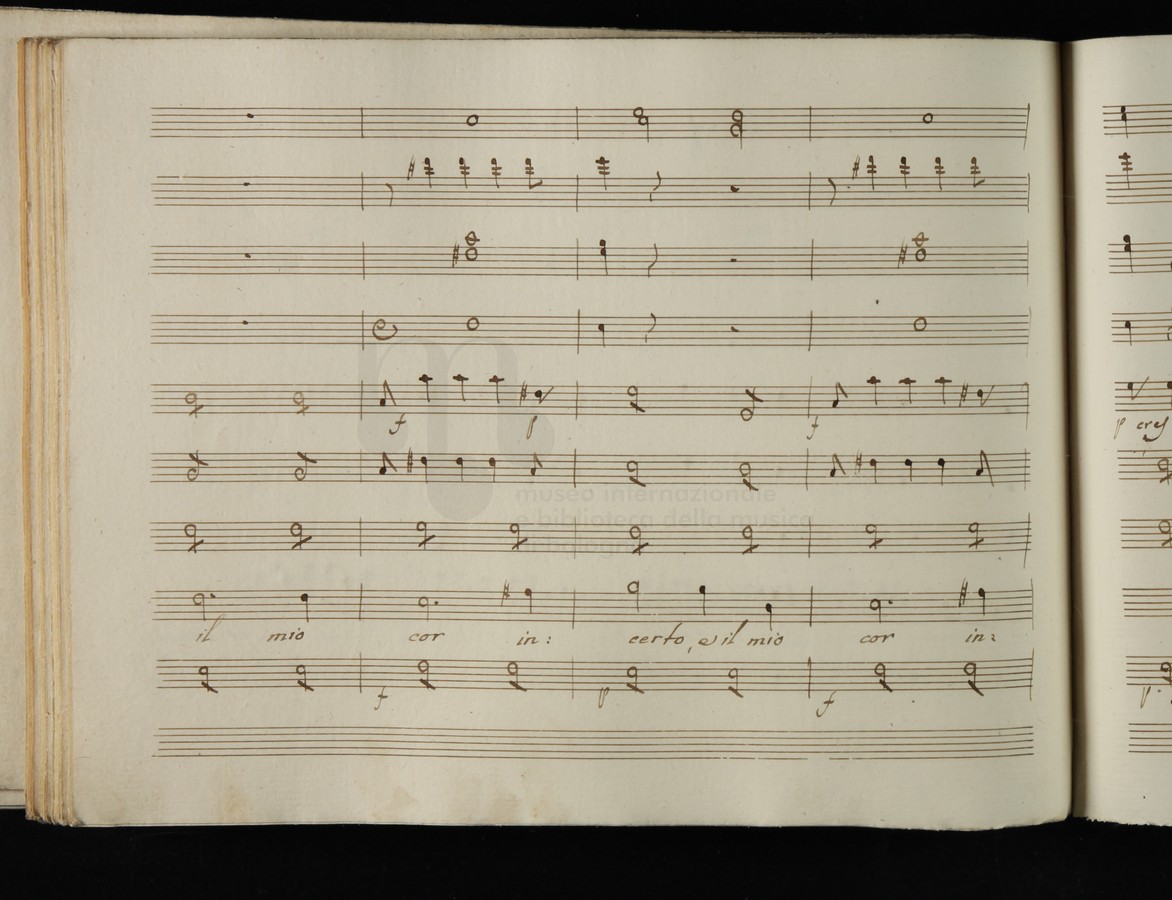 f p f
p cres
museo internazionale
e biblioteca della musica
di bologna
il mio cor in: certo, e il mio cor in:
f p f p